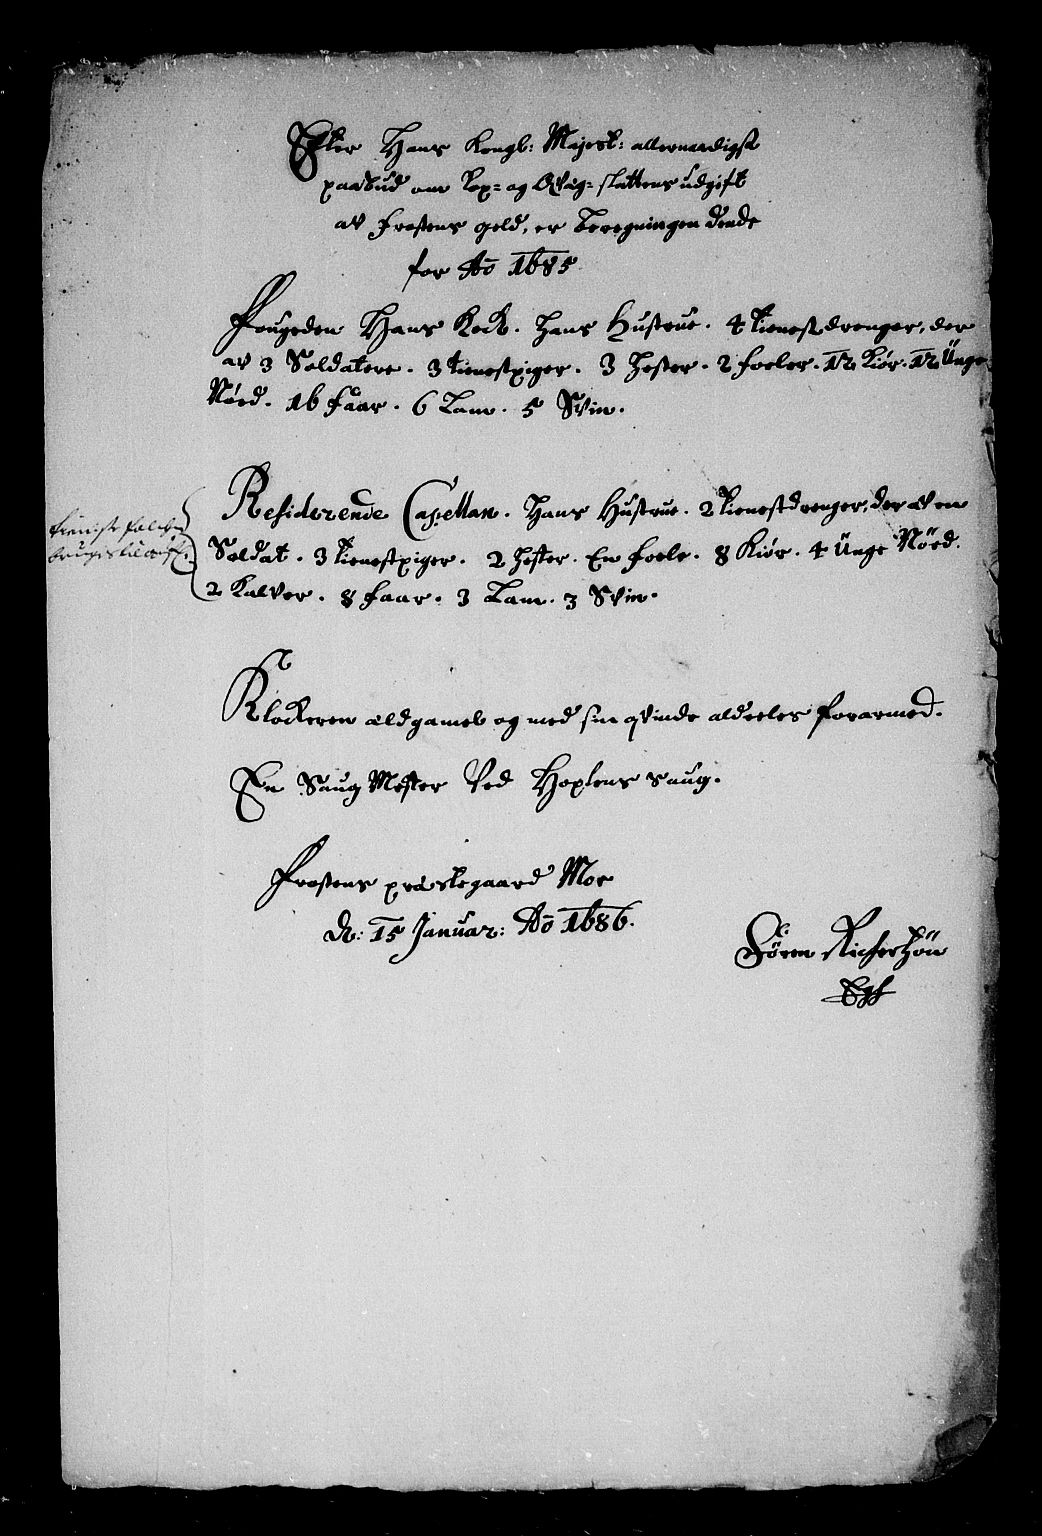 Efter Hans Kongl: Majest: allernaadigst
paabud om Kop= og Qvæg=skattens udgift
av Frostens geld, er beregningen dende
for Ao 1685
Fougeden Hans Kock. Hans Hustrue. 4 tienestdrenger, der
av 3 Soldatere. 3 tienestpiger. 3 Hester. 2 foeler. 12 Kiør. 12 Unge
Nöed. 16 faar. 6 Lam. 5 Svin.
Residerende Capellan. Hans Hustrue. 2 tienestdrenger, der av en
tieniste folch
bruges till
Soldat. 3 tienestpiger. 2 Hester. En foele. 8 Kiør. 4 Unge Nöed.
2 Kalver. 8 faar. 3 Lam. 3 Svin.
Klockeren ældgamel og med sin qvinde aldeeles forarmed.
En Saug Mester Ved Hoplens saug.
Frostens præstegaard Moe
d: 15 Januar: Ao 1686.
Sören
Egh